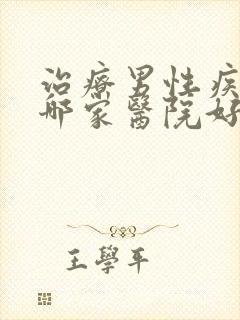 治療男性疾
哪家醫院好
王學平